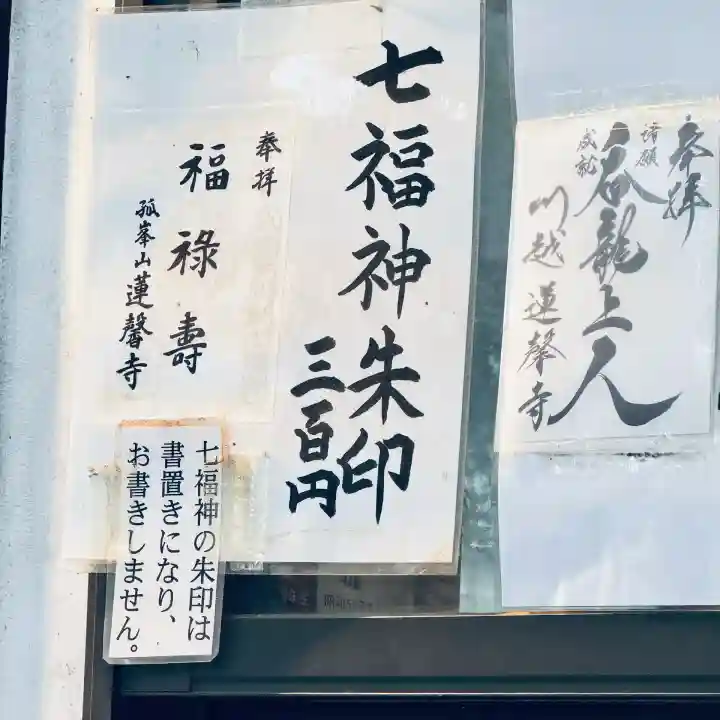 七福神朱印
三百円
奉拝
福祿壽
孤峯山蓮馨寺
七福神の朱印は
書置きになり、
お書きしません。
奉拝
諸願
成就
呑龍上人
川越蓮馨寺